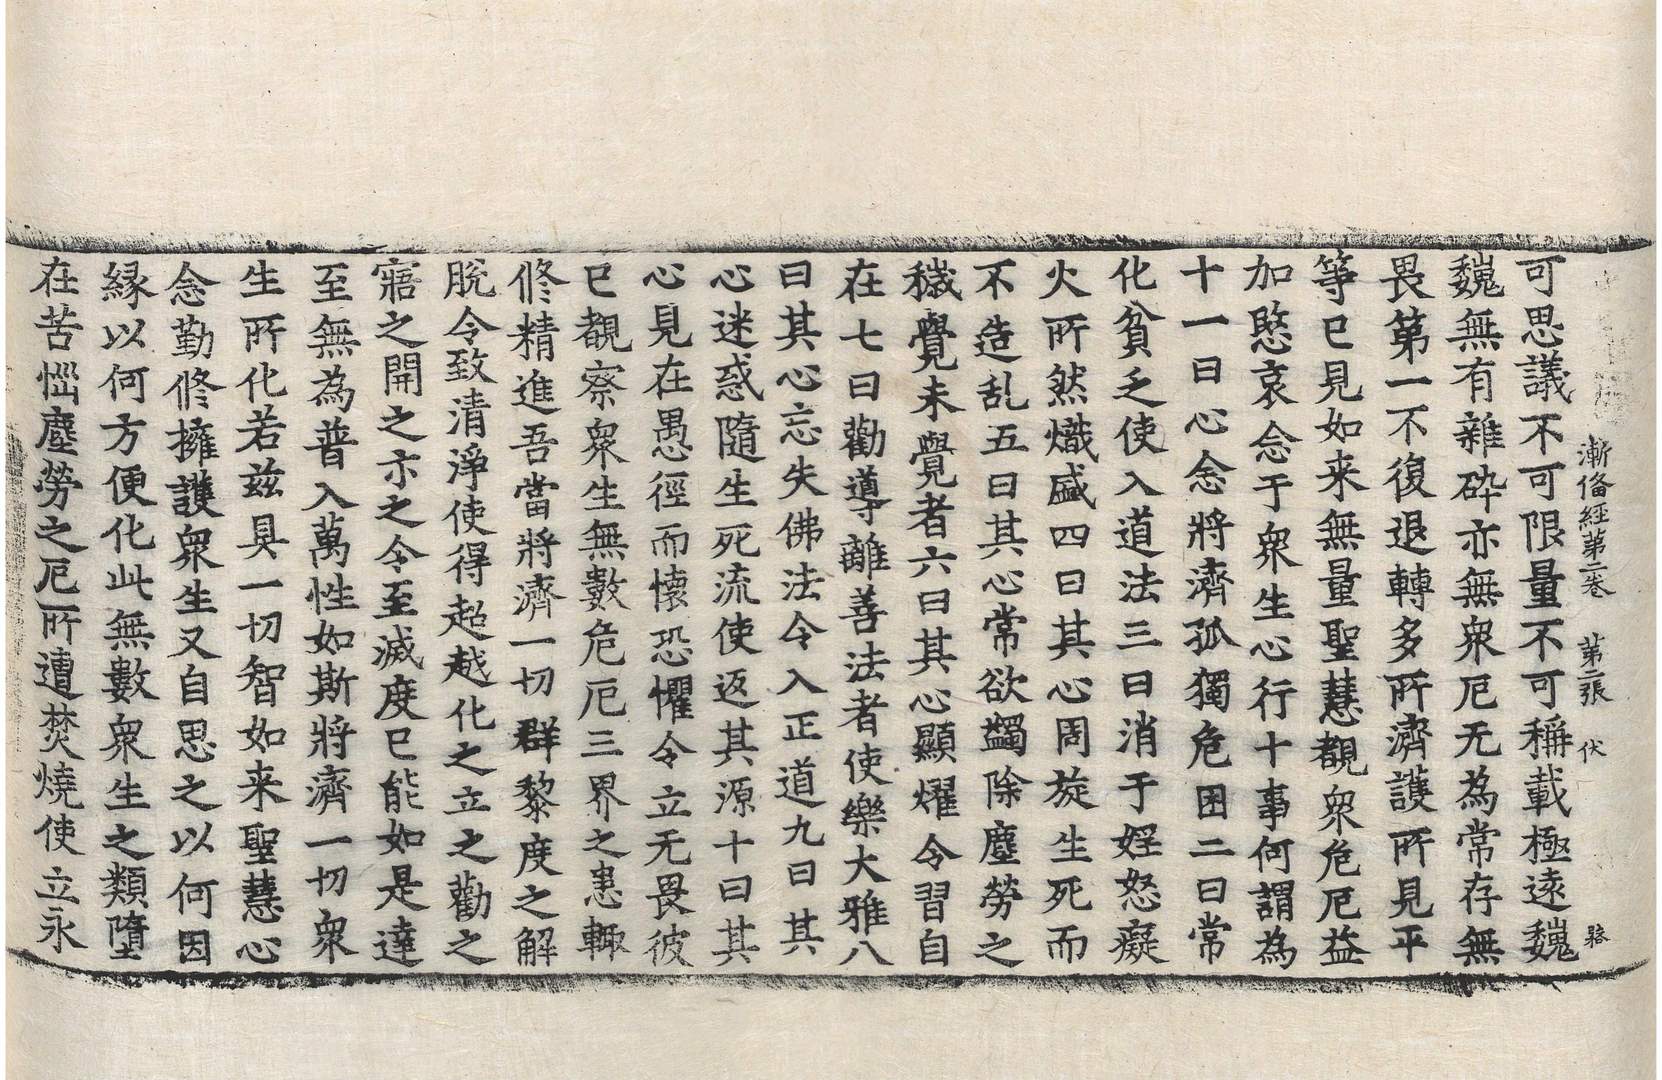 漸俻經第二卷 第二張 伏
可思議不可限量不可稱載極遠魏
魏無有雜碎亦無衆厄无為常存無
畏第一不復退轉多所濟護所見平
等已見如来無量聖慧覩衆危厄益
加愍哀念于衆生心行十事何謂為
十一曰心念將濟孤獨危困二曰常
化貧乏使入道法三曰消于婬怒癡
火所然熾盛四曰其心周旋生死而
不造乱五曰其心常欲蠲除塵勞之
穢覺未覺者六曰其心顯耀令習自
在七曰勸導離善法者使樂大雅八
曰其心忘失佛法令入正道九曰其
心迷惑隨生死流使返其源十曰其
心見在愚徑而懷恐懼令立无畏彼
已覩察衆生無數危厄三界之患輙
修精進吾當將濟一切群黎度之解
脫令致清淨使得超越化之立之勸之
寤之開之示之令至滅度已能如是達
至無為普入萬性如斯將濟一切衆
生所化若兹具一切智如来聖慧心
念勤修擁護衆生又自思之以何因
緣以何方便化此無數衆生之類墮
在苦惱塵勞之厄所遭焚燒使立永